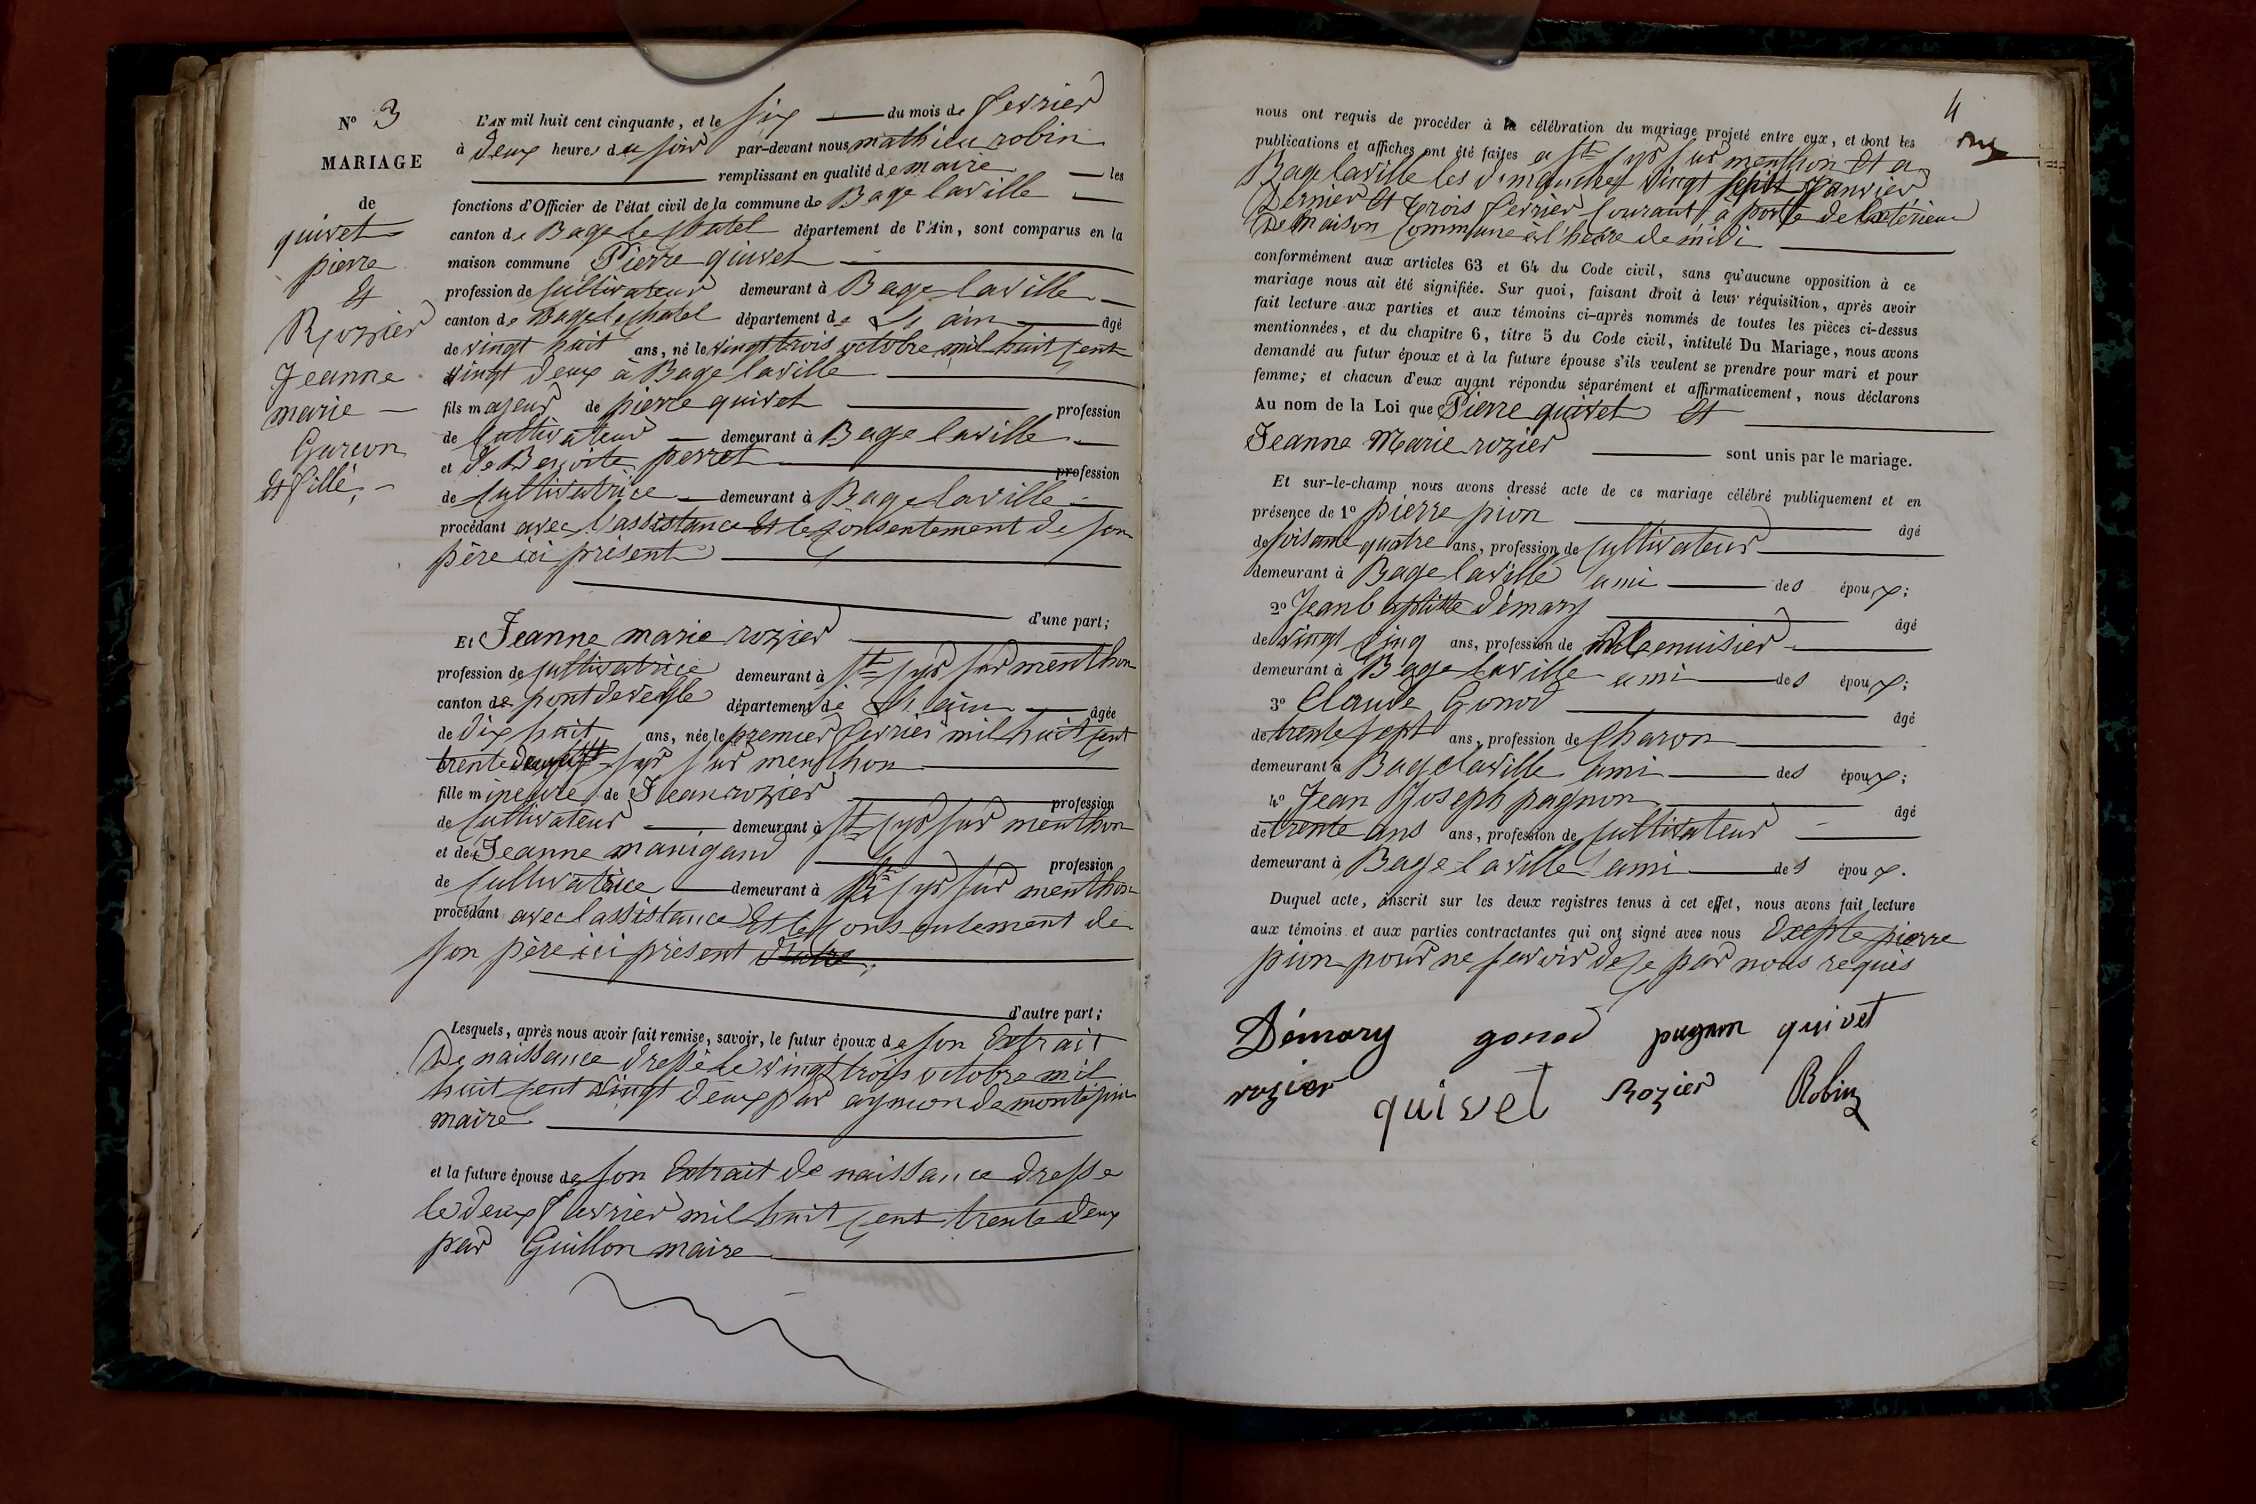 N° 3
MARIAGE
de
quivet
pierre
et
Rozzier
Jeanne
marie —
Garcon
et fille. —
L'AN mil huit cent cinquante, et le six — du mois de fevrier
à deux heures du soir par-devant nous mathieu robin
— remplissant en qualité de maire — les
fonctions d'Officier de l'état civil de la commune de Bage laville —
canton de Bage le chatel département de l'Ain, sont comparus en la
maison commune Pierre quivet —
profession de cultivateur demeurant à Bage laville —
canton de Bage le chatel département de L'ain — âgé
de vingt huit ans, né le vingt trois octobre mil huit cent
vingt deux à Bage laville —
fils majeur de pierre quivet — profession
de cultivateur — demeurant à Bage laville —
et de Benoite perret — profession
de cultivatrice — demeurant à Bage laville —
procédant avec l'assistance et le consentement de son
père ici présent —
d'une part;
Et Jeanne marie rozier —
profession de cultivatrice demeurant à St cyr sur menthon
canton de pontdeveyle département de L'ain — âgée
de dix huit ans, née le premier fevrier mil huit cent
trente deux à St cyr sur menthon —
fille mineure de Jean rozier — profession
de cultivateur — demeurant à St cyr sur menthon
et de Jeanne manigand — profession
de cultivatrice — demeurant à St cyr sur menthon
procédant avec l'assistance et le consentement de
son père ici présent —
d'autre part;
Lesquels, après nous avoir fait remise, savoir, le futur époux de son Extrait
De naissance dressé le vingt trois octobre mil
huit cent vingt deux par aymon de montépin
maire —
et la future épouse de son Extrait de naissance dresse
le deux fevrier mil huit cent trente deux
par Guillon maire —
4
nous ont requis de procéder à la célébration du mariage projeté entre eux, et dont les
publications et affiches ont été faites a St cyr sur menthon et a
Bage laville les dimanches vingt sept janvier
Dernier et trois fevrier courant à porte de l'extérieur
De maison commune à l'heure de midi —
conformément aux articles 63 et 64 du Code civil, sans qu'aucune opposition à ce
mariage nous ait été signifiée. Sur quoi, faisant droit à leur réquisition, après avoir
fait lecture aux parties et aux témoins ci-après nommés de toutes les pièces ci-dessus
mentionnées, et du chapitre 6, titre 5 du Code civil, intitulé Du Mariage, nous avons
demandé au futur époux et à la future épouse s'ils veulent se prendre pour mari et pour
femme; et chacun d'eux ayant répondu séparément et affirmativement, nous déclarons
Au nom de la Loi que Pierre quivet et —
Jeanne Marie rozier — sont unis par le mariage.
Et sur-le-champ nous avons dressé acte de ce mariage célébré publiquement et en
présence de 1° pierre pion — âgé
de soisante quatre ans, profession de cultivateur —
demeurant à Bage laville ami — des époux;
2° Jean baptitte démary — âgé
de vingt cinq ans, profession de Meenuisier —
demeurant à Bage laville ami — des époux;
3° Claude Gonod — âgé
de trente sept ans, profession de Charon —
demeurant à Bage laville ami — des époux;
4° Jean Joseph pagnon — âgé
de trente ans ans, profession de cultivateur —
demeurant à Bage laville ami — des époux.
Duquel acte, inscrit sur les deux registres tenus à cet effet, nous avons fait lecture
aux témoins et aux parties contractantes qui ont signé avec nous Excepte pierre
pion pour ne savoir de ce par nous requis
Démary gonod pagnon quivet
rozier quivet Rozier Robin